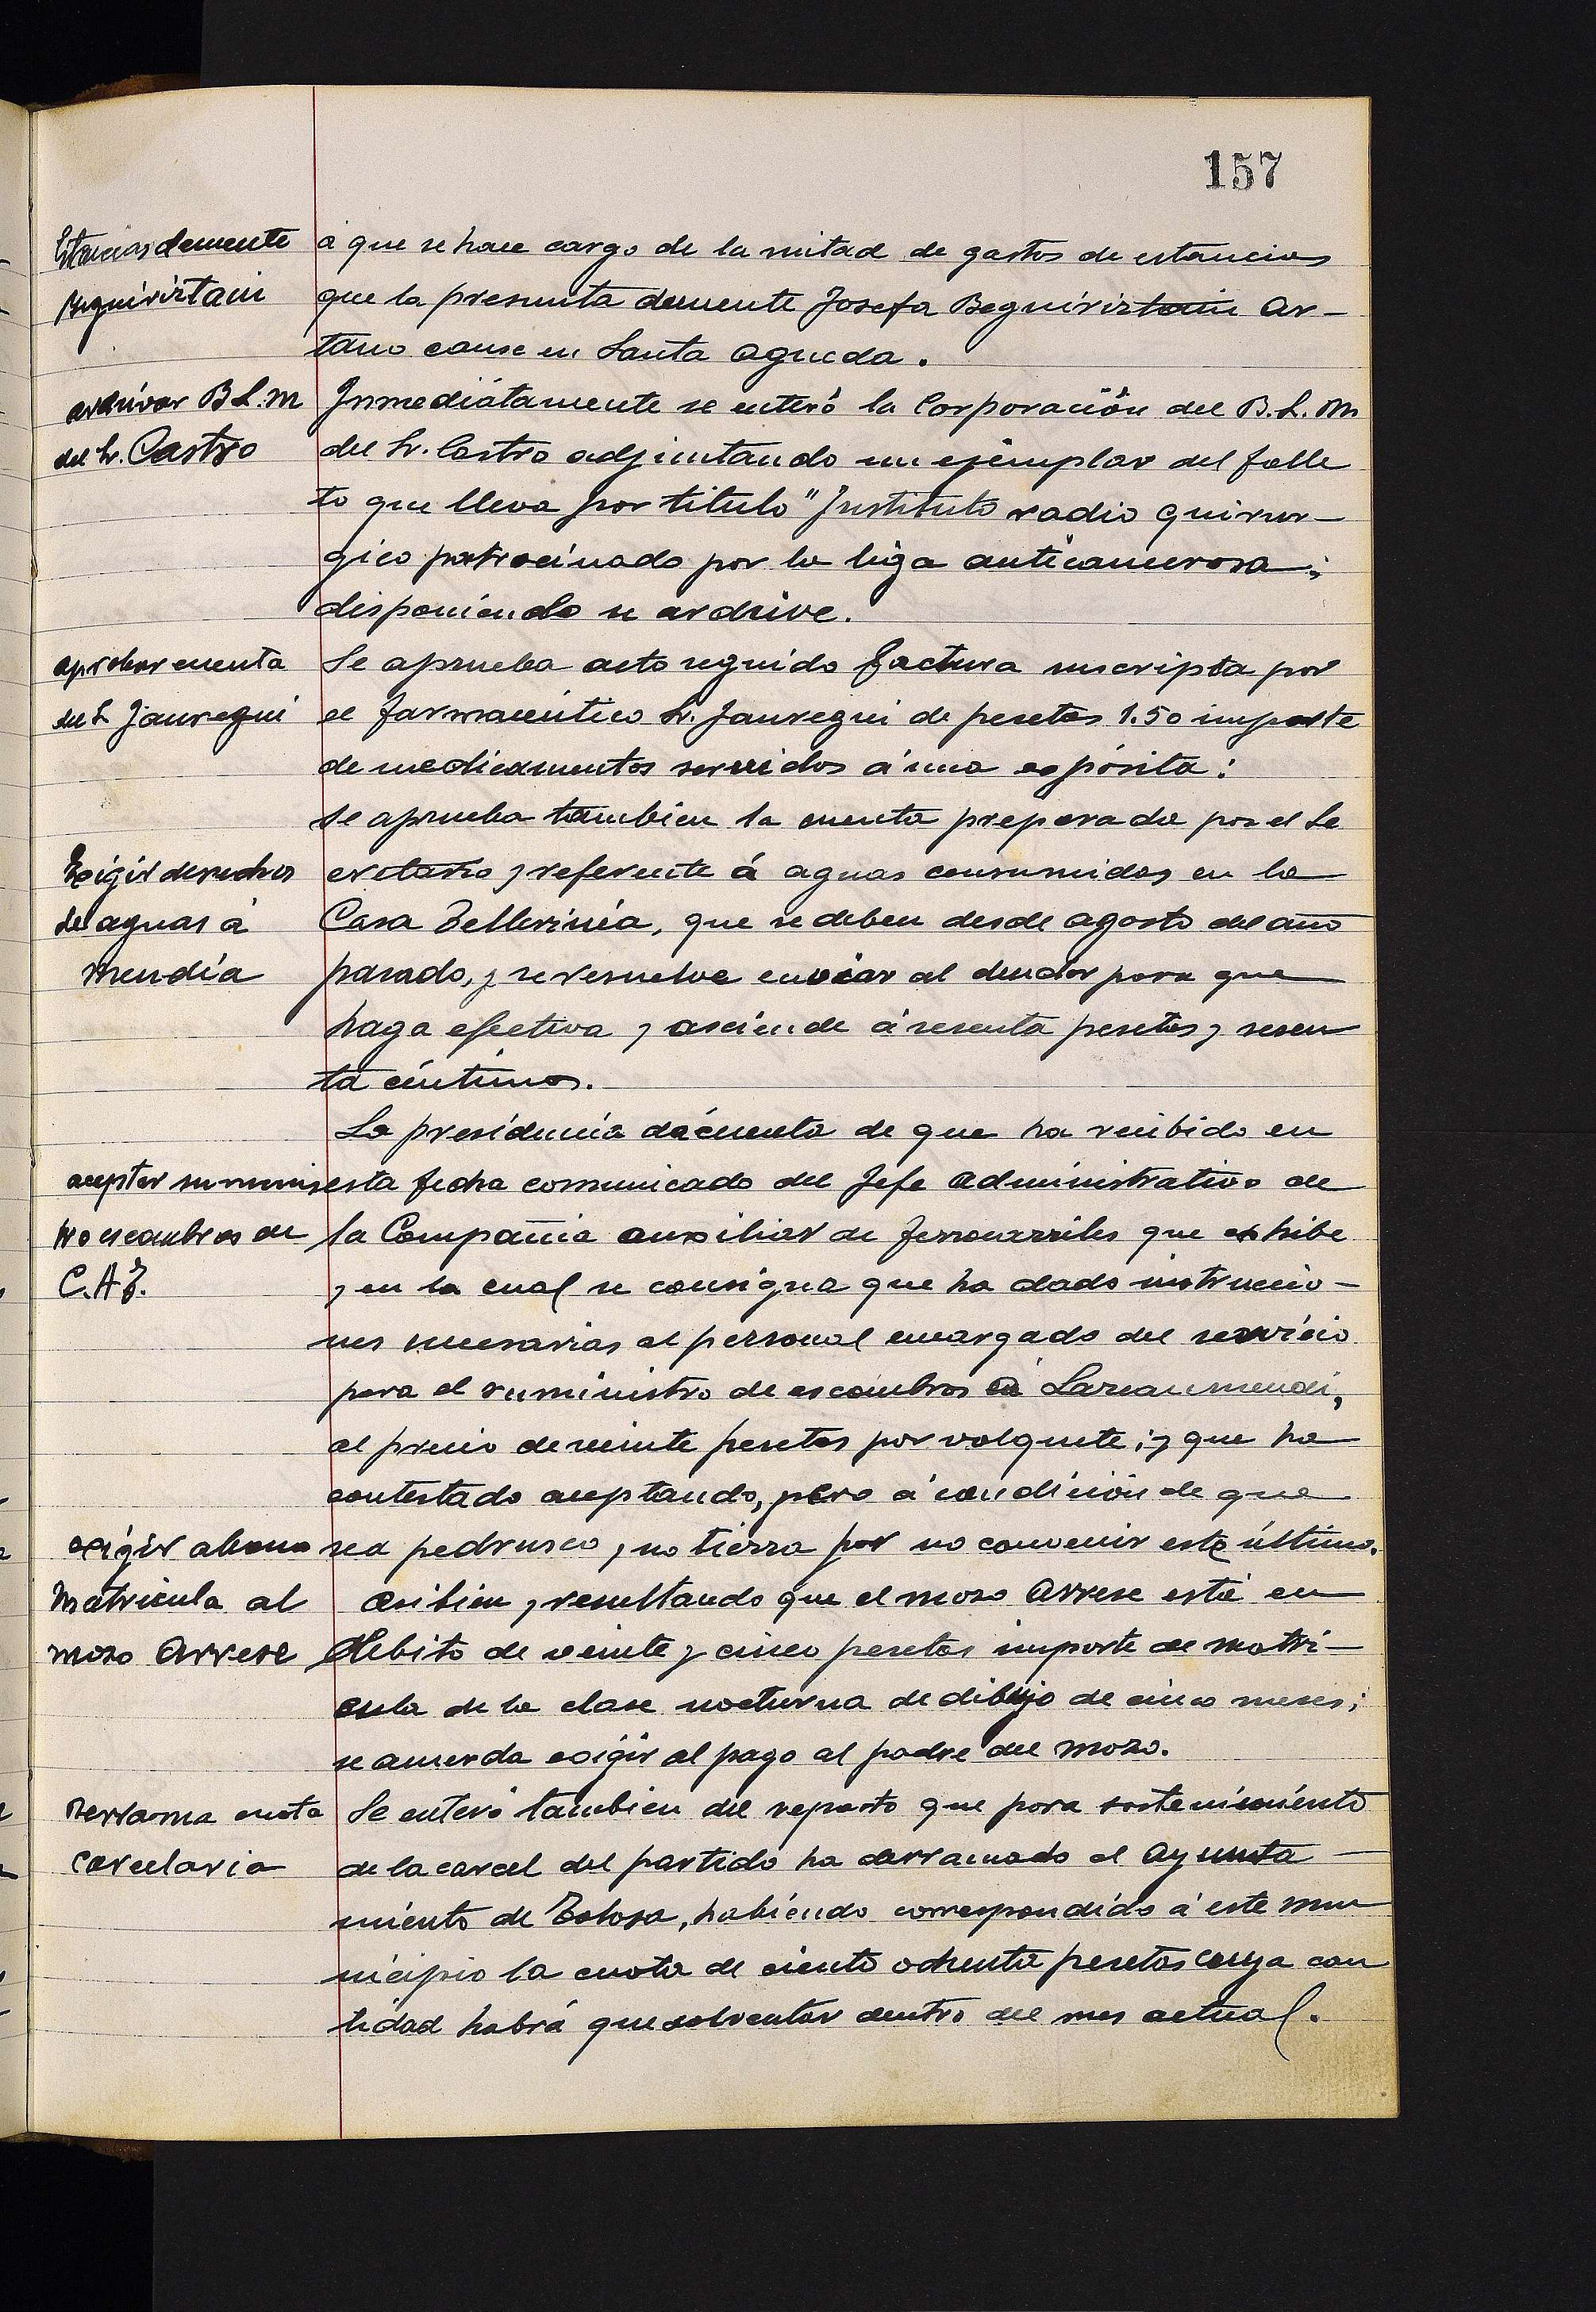 157
Estancias demente
Beguiriztain
á que se hace cargo de la mitad de gastos de estancias
que la presunta demente Josefa Beguiriztain Ar-
tano cause en Santa Agueda.
archivar B L. M
del Sr. Castro
Inmediátamente se enteró la Corporación del B. L. M
del Sr. Castro adjuntando un ejemplar del folle
to que lleva por titulo "Instituto radio quirur-
gico patrocinado por la liga anticancerosa;
disponiendo se archive.
aprobar cuenta
del Sr Jauregui
Se aprueba acto seguido factura suscripta por
el farmacéutico Sr. Jauregui de pesetas 1.50 importe
de medicamentos servidos á una expósita:
Se aprueba tambien la cuenta preparada por el Se
Exigir derechos
de aguas á
Mendia
cretario y referente á aguas consumidas en la
Casa Tellerinea, que se deben desde agosto del año
pasado, y se resuelve enviar al deudor para que
haga efectiva y asciende á sesenta pesetas y sesen
ta céntimos.
La presidencia dá cuenta de que ha recibido en
aceptar suminis
tro escombros de
C.A.F.
esta fecha comunicado del Jefe Administrativo de
la Compañia auxiliar de ferrocarriles que exhibe
y en la cual se consigna que ha dado instruccio-
nes necesarias al personal encargado del servicio
para el suministro de escombros en Lazcanmendi,
al precio de veinte pesetas por volquete; y que ha
contestado aceptando, pero á condición de que
exigir abono
matricula al
mozo Arrese
sea pedrusco y no tierra por no convenir este último.
Asi bien y resultando que el mozo Arrese está en
débito de veinte y cinco pesetas importe de matri-
cula de la clase nocturna de dibujo de cinco meses;
se acuerda exigir al pago al padre del mozo.
Derrama cuota
Carcelaria
Se enteró tambien del reparto que para sostenimiento
de la carcel del partido ha derramado el Ayunta-
miento de Tolosa, habiendo correspondido á este mu
nicipio la cuota de ciento ochenta pesetas cuya can
tidad habrá que solventar dentro del mes actual.